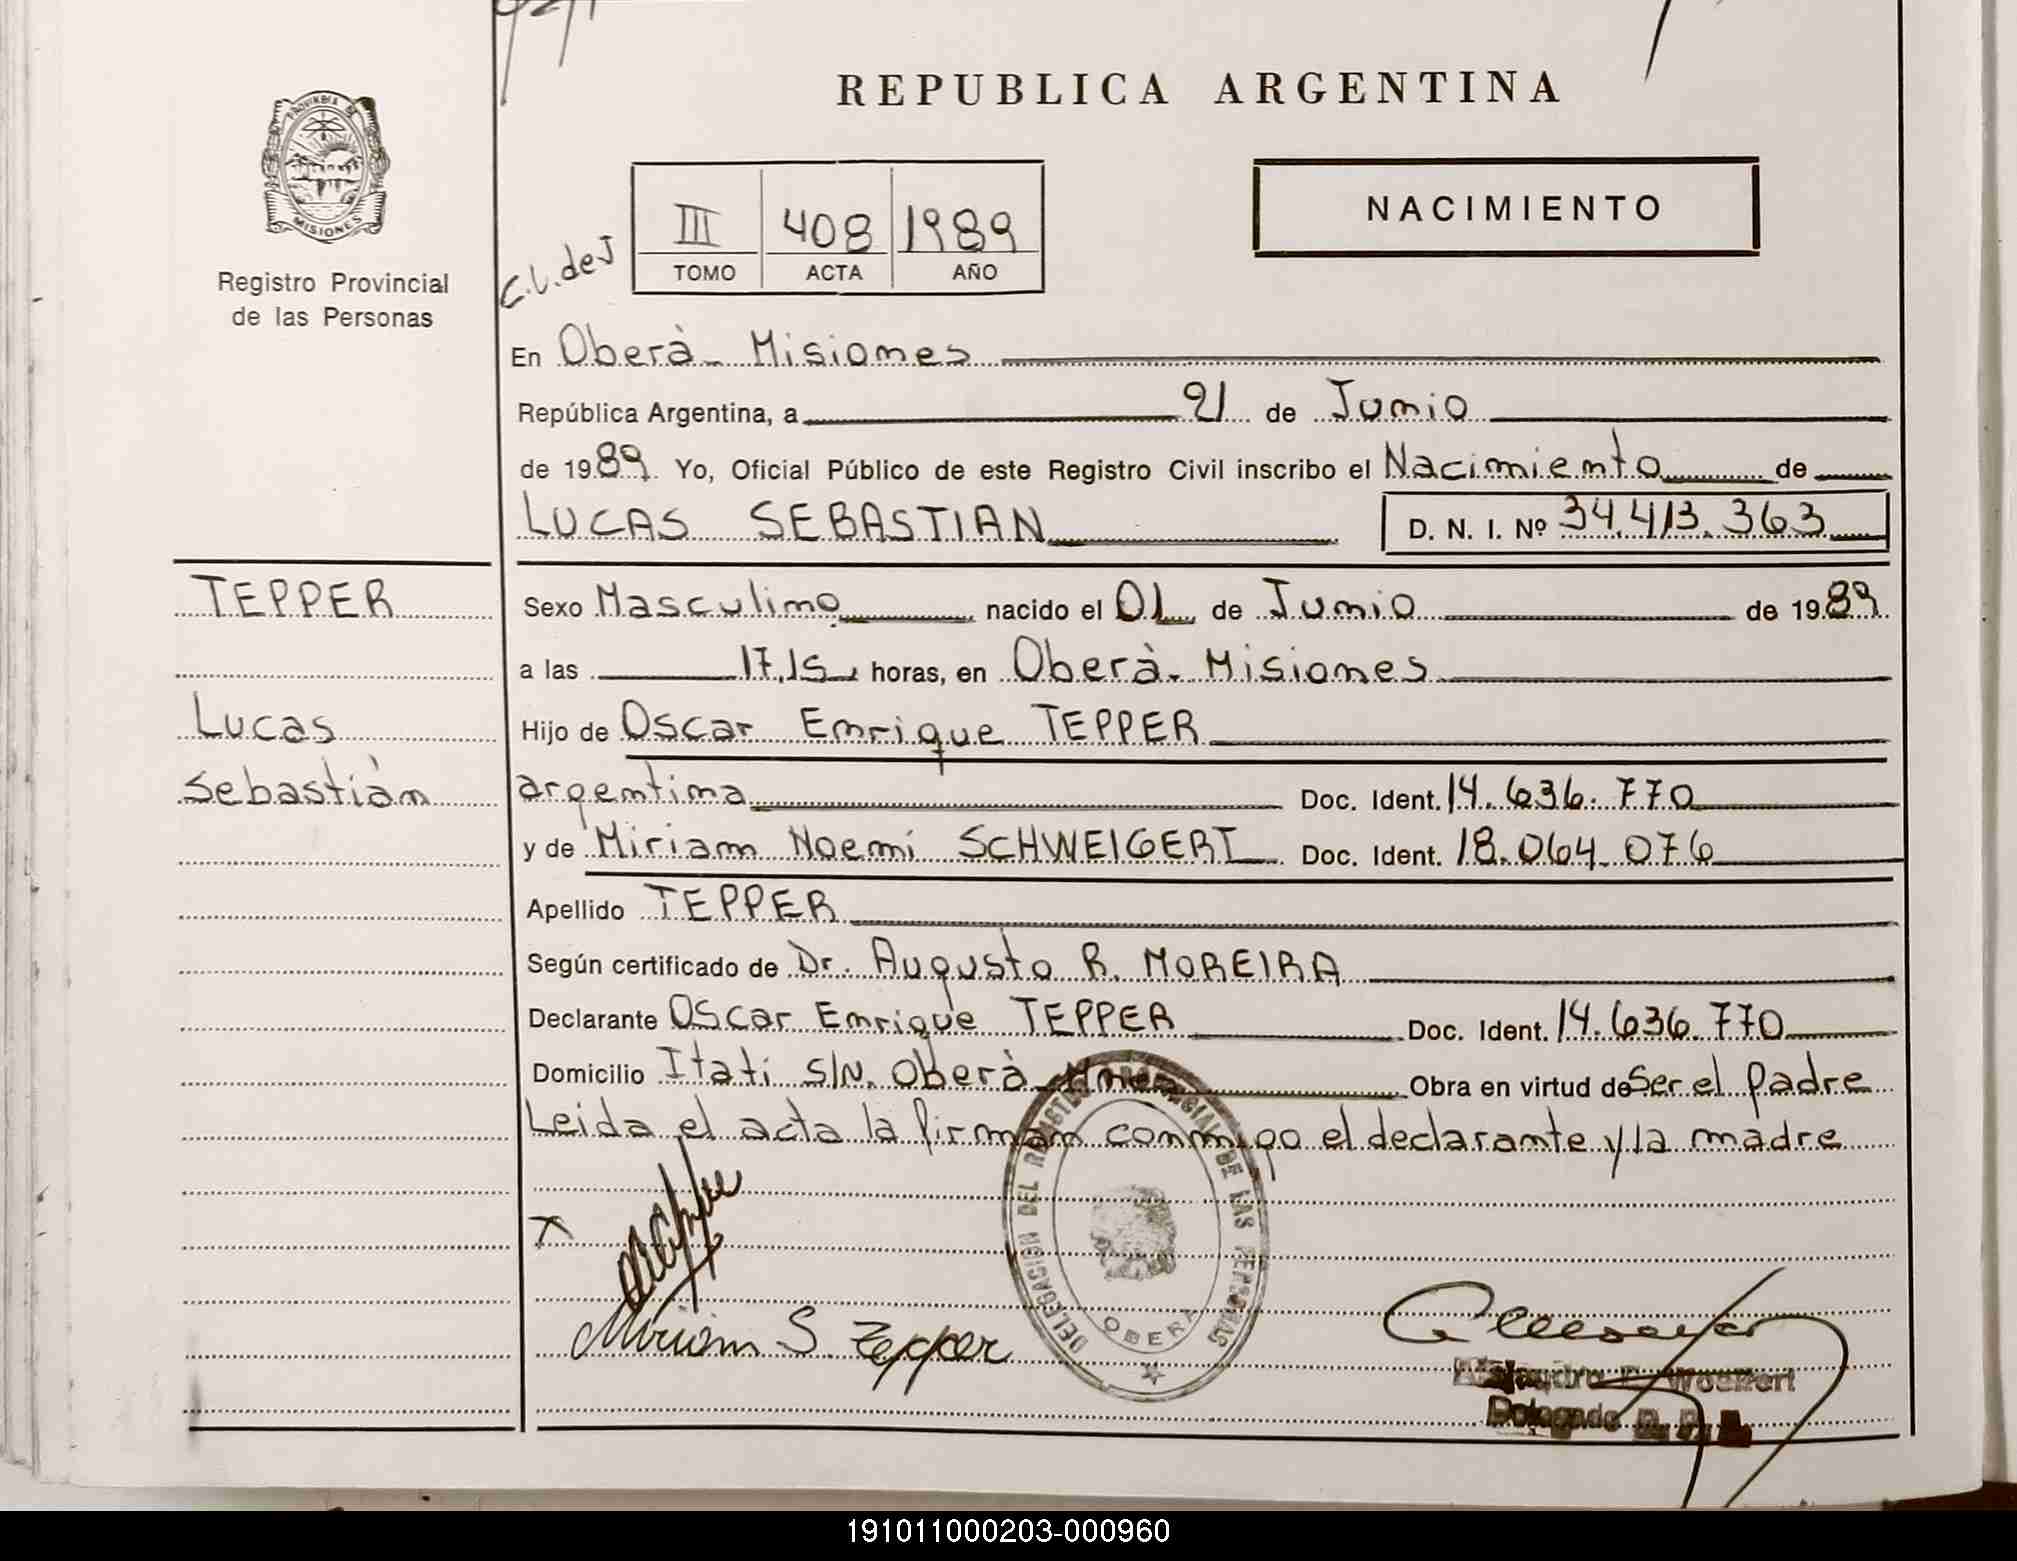 REPUBLICA ARGENTINA
PROVINCIA DE
MISIONES
Registro Provincial
de las Personas
C.L. de J
III 408 1989
TOMO ACTA AÑO
NACIMIENTO
En Oberà - Misiones
República Argentina, a 21 de Junio
de 1989. Yo, Oficial Público de este Registro Civil inscribo el Nacimiento de
LUCAS SEBASTIAN D. N. I. Nº 34.413.363
TEPPER
Lucas
Sebastiàn
Sexo Masculino nacido el 01 de Junio de 1989
a las 17,15 horas, en Oberà - Misiones
Hijo de Oscar Enrique TEPPER
argentina Doc. Ident. 14.636.770
y de Miriam Noemí SCHWEIGERT Doc. Ident. 18.064.076
Apellido TEPPER
Según certificado de Dr. Augusto R. MOREIRA
Declarante Oscar Enrique TEPPER Doc. Ident. 14.636.770
Domicilio Itatí s/N. Oberà - Mnes Obra en virtud de Ser el Padre
Leida el acta la firman conmigo el declarante y la madre
DELEGACION DEL REGISTRO PROVINCIAL DE LAS PERSONAS
OBERA
X
Miriam S. Tepper
Delegado
191011000203-000960